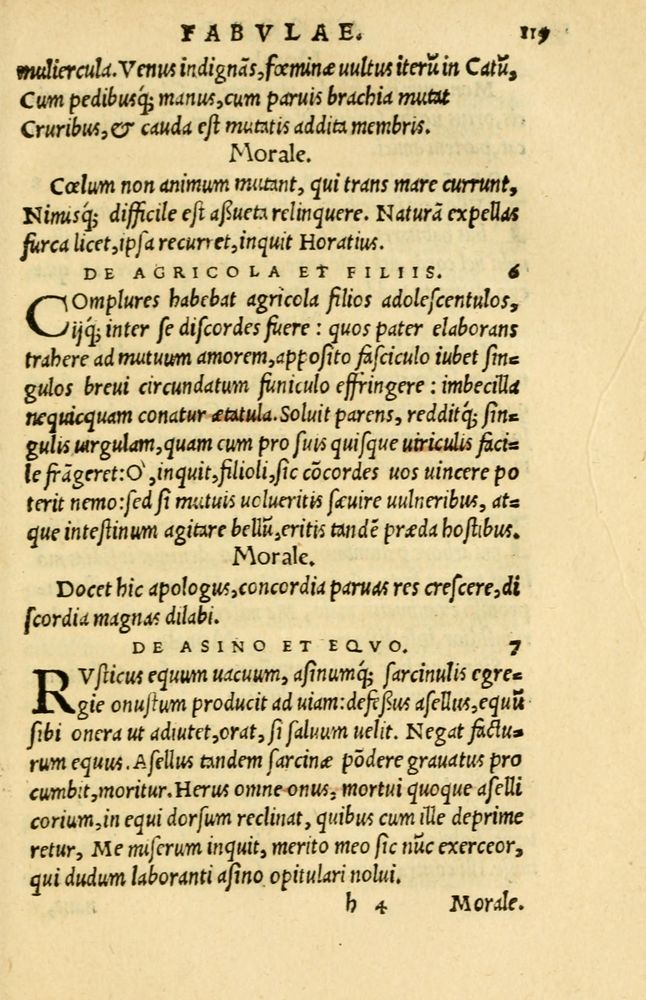 FABVLAE. 119
muliercula. Venus indignãs, fœminæ uultus iterũ in Catũ,
Cum pedibusq́; manus, cum paruis brachia mutat
Cruribus, & cauda est mutatis addita membris.
Morale.
Cœlum non animum mutant, qui trans mare currunt,
Nimisq́; difficile est aßueta relinquere. Naturã expellas
furca licet, ipsa recurret, inquit Horatius.
DE AGRICOLA ET FILIIS. 6
COmplures habebat agricola filios adolescentulos,
ijq́; inter se discordes fuere : quos pater elaborans
trahere ad mutuum amorem, apposito fasciculo iubet sin=
gulos breui circundatum funiculo effringere : imbecilla
nequicquam conatur ætatula. Soluit parens, redditq́; sin=
gulis uirgulam, quam cum pro suis quisque uiriculis faci=
le frãgeret: O', inquit, filioli, sic cõcordes uos uincere po
terit nemo: sed si mutuis uolueritis sæuire uulneribus, at=
que intestinum agitare bellũ, eritis tandẽ præda hostibus.
Morale.
Docet hic apologus, concordia paruas res crescere, di
scordia magnas dilabi.
DE ASINO ET EQVO. 7
RVsticus equum uacuum, asinumq́; sarcinulis egre=
gie onustum producit ad uiam: defeßus asellus, equũ
sibi onera ut adiutet, orat, si saluum uelit. Negat factu=
rum equus. Asellus tandem sarcinæ põdere grauatus pro
cumbit, moritur. Herus omne onus, mortui quoque aselli
corium, in equi dorsum reclinat, quibus cum ille deprime
retur, Me miserum inquit, merito meo sic nũc exerceor,
qui dudum laboranti asino opitulari nolui.
h 4 Morale.